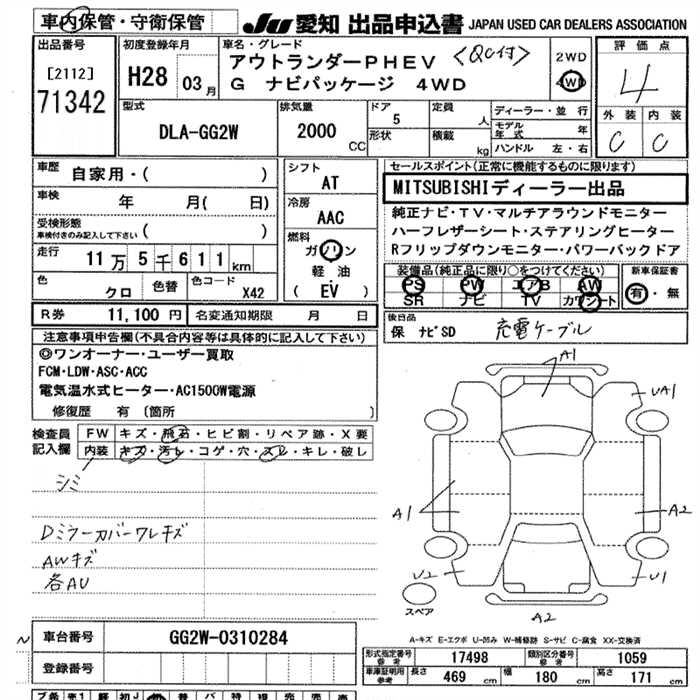 車内保管・守衛保管 JU 愛知 出品申込書 JAPAN USED CAR DEALERS ASSOCIATION
出品番号 初度登録年月 車名・グレード 評価点
[2112] H28 03月 アウトランダーPHEV <QC付> 2WD 4
71342 G ナビパッケージ 4WD 4WD
型式 排気量 ドア 定員 ディーラー・並行 外装 内装
DLA-GG2W 2000 CC 5 人 モデル年式 年 C C
形状 積載 kg ハンドル 左・右
車歴 自家用・( ) シフト AT セールスポイント(正常に機能するものに限ります)
MITSUBISHIディーラー出品
車検 年 月( 日) 冷房 AAC
純正ナビ・TV・マルチアラウンドモニター
受検形態 車検付きのみ記入して下さい ( ) 燃料
ハーフレザーシート・ステアリングヒーター
走行 11万5千611km ガソリン
Rフリップダウンモニター・パワーバックドア
軽油
装備品(純正品に限り○をつけてください) 新車保証書
色 クロ 色替 色コード X42 (EV)
PS PW エアB AW 有・無
SR ナビ TV カワシート
R券 11,100円 名変通知期限 月 日
後日品
保 ナビSD 充電ケーブル
注意事項申告欄(不具合内容等は具体的に記入して下さい)
◎ワンオーナー・ユーザー買取
FCM・LDW・ASC・ACC
電気温水式ヒーター・AC1500W電源
修復歴 有 〔箇所 〕
検査員 FW キズ・飛石・ヒビ割・リペア跡・X要
記入欄 内装 キズ・汚レ・コゲ・穴・スレ・キレ・破レ
シミ
Dミラーカバーワレキズ
AWキズ
各AU
A1
UA1
A1
A2
U2
U1
スペア
A2
A-キズ E-エクボ U-凹み W-補修跡 S-サビ C-腐食 XX-交換済
車台番号 GG2W-0310284
登録番号
形式指定番号 参考 17498 類別区分番号 参考 1059
車庫証明用 参考 長さ 469 cm 幅 180 cm 高さ 171 cm